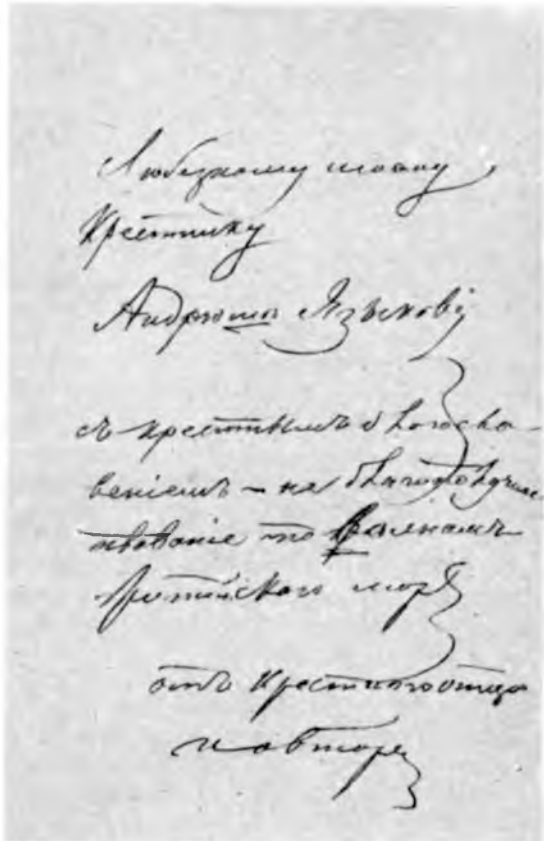 Любезному моему
Крестнику
Андрюшѣ Языкову,
съ крестнымъ благосло-
веніемъ – на благополучное
плаваніе по волнамъ
житейскаго моря
отъ крестнаго отца
и автора